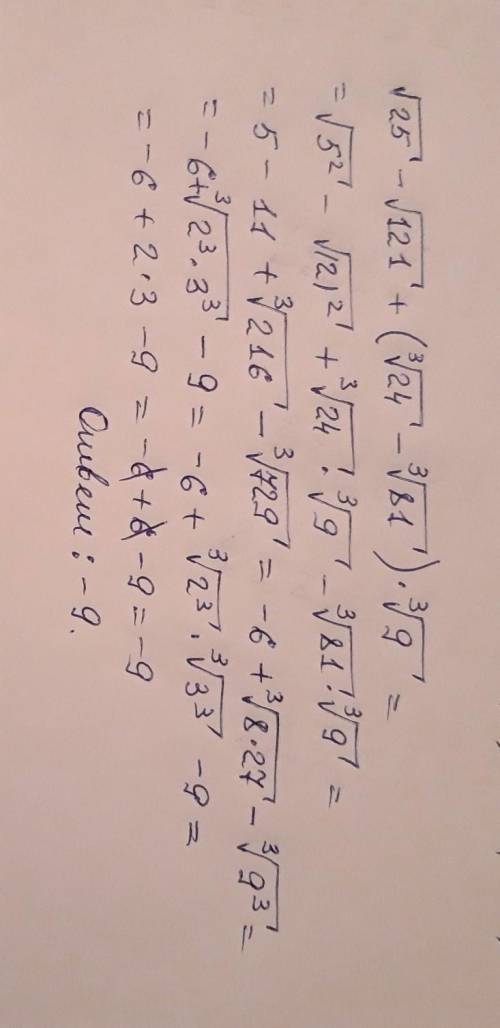 √25 - √121 + (∛24 - ∛81) · ∛9 =
= √5² - √12)² + ∛24 · ∛9 - ∛81 · ∛9 =
= 5 - 11 + ∛216 - ∛729 = -6 + ∛8·27 - ∛9³ =
= -6 + ∛2³·3³ - 9 = -6 + ∛2³ · ∛3³ - 9 =
= -6 + 2·3 - 9 = -6 + 6 - 9 = -9
Ответ: -9.